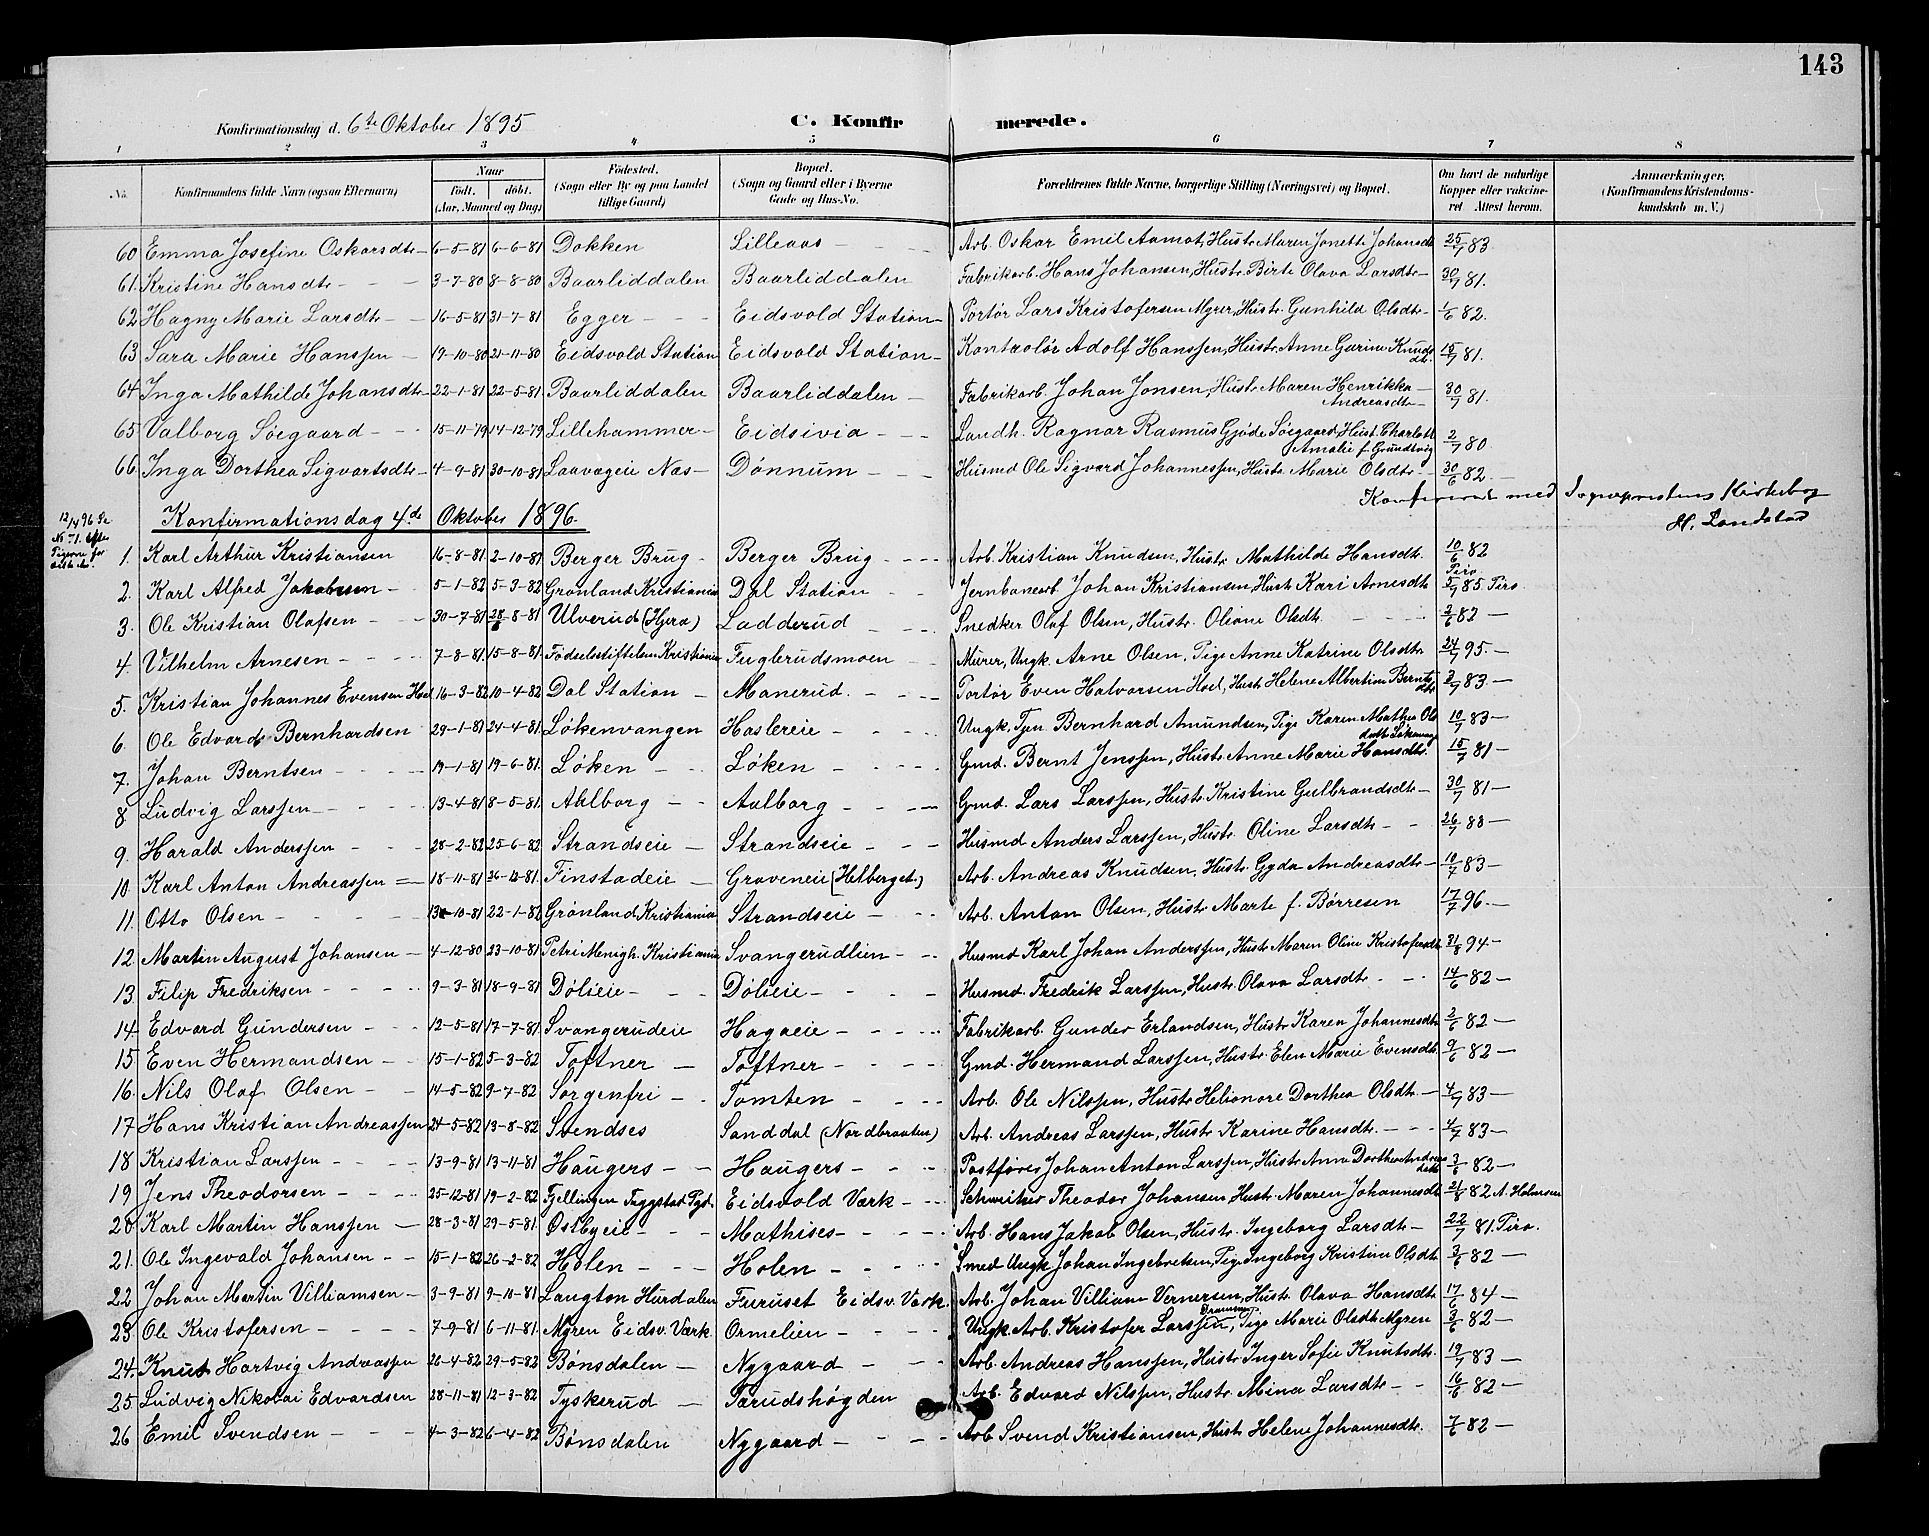 143
Konfirmationsdag d. 6te Oktober 1895 C. Konfirmerede.
1 2 3 4 5 6 7 8
No. Konfirmandens fulde Navn (ogsaa Efternavn) Naar født. døbt. (Aar, Maaned og Dag) Fødested. (Sogn eller By og paa Landet tillige Gaard) Bopæl. (Sogn og Gaard eller i Byerne Gade og Hus-No. Forældrenes fulde Navne, borgerlige Stilling (Næringsvei) og Bopæl. Om havt de naturlige Kopper eller vakcineret Attest herom. Anmærkninger. (Konfirmandens Kristendomskundskab m. V.)
60 Emma Josefine Oskarsdtr 6-5-81 6-6-81 Dokken Lilleaas Arb. Oskar Emil Aamot, Hustr. Maren Jonette Johansdtr 25/7 83
61. Kristine Hansdtr 3-7-80 8-8-80 Baarliddalen Baarliddalen Fabrikarb. Hans Johansen, Hustr. Birte Olava Larsdtr 30/7 81.
62 Hagny Marie Larsdtr 16-5-81 31-7-81 Egger Eidsvold Station Portør Lars Kristofersen Myrer, Hustr. Gunhild Olsdtr 1/6 82.
63 Sara Marie Hanssen 19-10-80 21-11-80 Eidsvold Station Eidsvold Station Kontrolør Adolf Hanssen, Hustr. Anne Gurine Knudsdtr. 15/7 81.
64 Inga Mathilde Johansdtr 22-1-81 22-5-81 Baarliddalen Baarliddalen Fabrikarb. Johan Jonsen, Hustr. Maren Henrikka Andreasdtr 30/7 81.
65 Valborg Søegaard 15-11-79 14-12-79 Lillehammer Eidsivia Landh. Ragnar Rasmus Gjøde Søegaard, Hust. Charlotte Amalie f. Grundtvig 2/7 80
66. Inga Dorthea Sigvartsdtr 4-9-81 30-10-81 Laavøgeie Næs Dønnum Husmd Ole Sigvard Johannessen, Hustr. Marie Olsdtr 30/6 82.
Konfereret med Sognepræstens Kirkebog
H. Landstad
Konfirmationsdag 4de Oktober 1896.
1. Karl Arthur Kristiansen 16-8-81 2-10-81 Berger Brug Berger Brug Arb. Kristian Knudsen, Hustr. Mathilde Hansdtr. 10/6 82
2. Karl Alfred Jakobsen 5-1-82 5-3-82 Grønland Kristiania Dal Station Jernbanearb Johan Kristiansen, Hustr Kari Arnesdtr 5/7 85. Piro
3. Ole Kristian Olafsen 30-7-81 28/8-81 Ulverud (Hjera) Ladderud Snedker Olaf Olsen, Hustr. Oliane Olsdtr 2/6 82
4. Vilhelm Arnesen 7-8-81 15-8-81 Fødselsstiftelsen Kristiania Fuglerudsmoen Murer, Ungk. Arne Olsen, Pige Anne Katrine Olsdtr 24/7 95.
5. Kristian Johannes Evensen Hoel 16-3-82 10-4-82 Dal Station Manerud. Portør Even Halvorsen Hoel, Hustr Helene Albertine Berntsdtr 2/7 83
6. Ole Edvard Bernhardsen 29-1-81 24-4-81 Løkenvangen Haslereie Ungk, Tjen Bernhard Amundsen, Pige Karen Mathea Ols dattr Løkenvang 10/7 83
7. Johan Berntsen 19-1-81 19-6-81 Løken Løken Gmd. Bernt Jenssen, Hustr. Anne Marie Hansdtr. 15/7 81
8 Ludvig Larssen 13-4-81 8-5-81 Ahlborg Aalborg Gmd. Lars Larssen, Hustr. Kristine Gulbrandsdtr 30/7 81
9. Harald Anderssen 28-2-82 25-6-82 Strandseie Strandseie Husmd Anders Larssen, Hustr. Oline Larsdtr 26/7 88
10. Karl Anton Andreassen 18-11-81 26-12-81 Finstadeie Graveneie (Helberget.) Arb. Andreas Knudsen, Hustr. Gyda Andreasdtr 10/7 83
11. Otto Olsen 13-10-81 22-1-82 Grønland Kristiania Strandseie Arb. Anton Olsen, Hustr Marte f. Børresen 17/7 96.
12. Martin August Johansen 4-12-80 23-10-81 Petri Menigh. Kristiania Svangerudlien Husmd Karl Johan Anderssen, Hustr Maren Oline Kristofersdtr 31/8 94
13. Filip Fredriksen 9-3-81 18-9-81 Dølieie Dølieie Husmd. Fredrik Larssen, Hustr. Olava Larsdtr 14/6 82
14. Edvard Gundersen 12-5-81 17-7-81 Svangerudeie Hagaeie Fabrikarb. Gunder Erlandsen, Hustr Karen Johannesdtr 2/6 82
15 Even Hermandsen 15-1-82 5-3-82 Toftner Toftner Gmd. Hermand Larssen, Hustr. Elen Marie Evensdtr. 9/6 82
16. Nils Olaf Olsen 14-5-82 9-7-82 Sorgenfri Tomten Arb. Ole Nilssen, Hustr Helionore Dorthea Olsdtr. 4/7 83
17 Hans Kristian Andreassen 24-5-82 13-8-82 Stendses Sanddal (Nordbraaten) Arb. Andreas Larssen, Hustr Karine Hansdtr. 4/7 83
18 Kristian Larssen 13-9-81 13-11-81 Haugers Haugers Postfører Johan Anton Larssen, Hustr Anne Dorthea Andreasdatter 3/6 82
19 Jens Theodorsen 25-12-81 19-2-82 Eidsvold Værk Schweitzer Theodor Johansen, Hustr. Maren Johannesdtr 21/8 82 A. Holmsen
20 Karl Martin Hanssen 28-3-81 29-5-81 Østbyeie Mathises Arb. Hans Jakob Olsen, Hustr. Ingeborg Larsdtr 22/7 81. Piro.
21. Ole Ingevald Johansen 15-1-82 26-2-82 Holen Holen Smed Ungk Johan Ingebretsen, Pige Ingeborg Kristine Olsdtr 3/6 82
22 Johan Martin Villiamsen 3-9-81 9-10-81 Langton Hurdalen Furuset Eidsv. Værk. Arb. Johan Villiam Vernersen, Hustr. Olava Hansdtr 17/6 84
23. Ole Kristofersen 7-9-81 6-11-81 Myren Eidsv. Værk. Ormelien Ungk. Arb. Kristofer Larssen, Pige Marie Olsdtr Myren 3/6 82
24. Knut Hartvig Andreassen 26-4-82 29-5-82 Bønsdalen Nygaard Arb. Andreas Hanssen, Hustr Inger Sofie Knutsdtr. 19/7 83
25 Ludvig Nikolai Edvardsen 28-11-81 12-3-82 Tyskerud Tærudshøgden Arb. Edvard Nilssen, Hustr. Mina Larsdtr 16/6 82
26 Emil Svendsen 4-3-82 6-4-82 Bønsdalen Nygaard Arb Svend Kristiansen, Hustr Helene Johannesdtr. 7/6 82